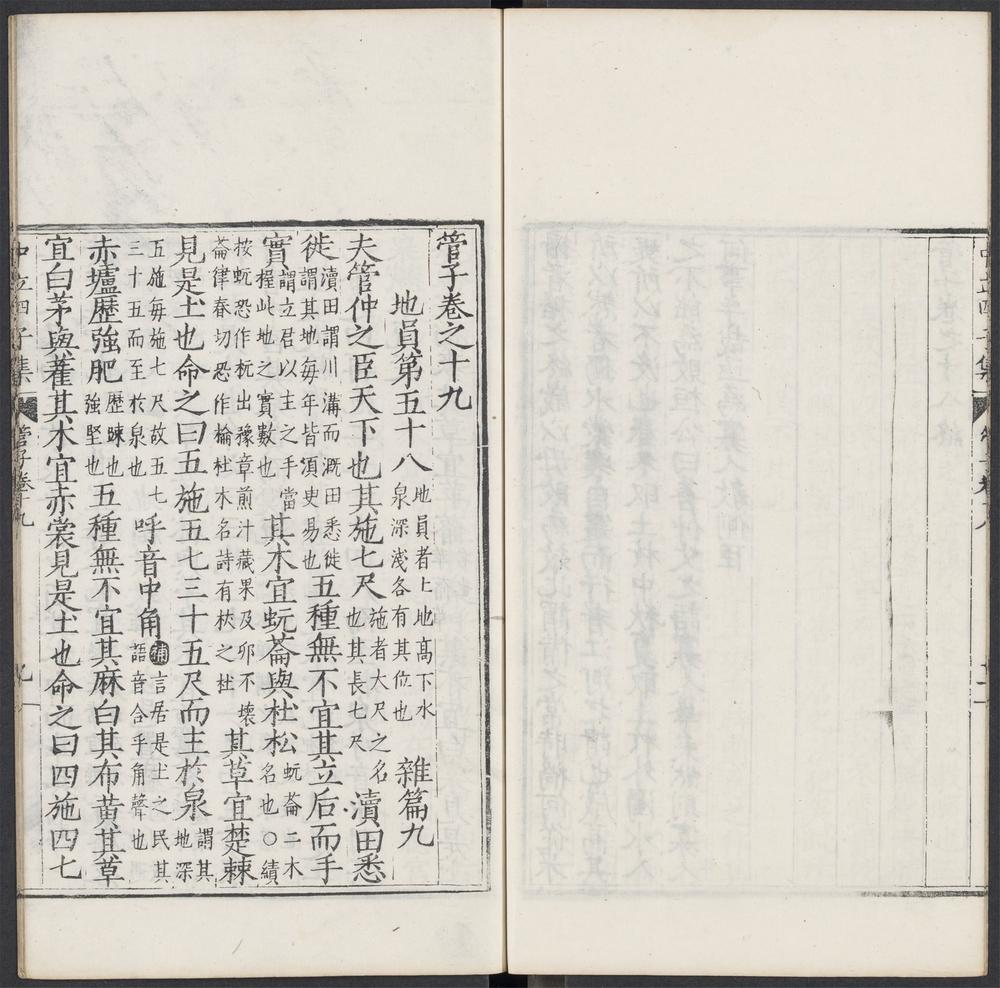 管子卷之十九
地員第五十八 地員者土地髙下水泉深淺各有其位也 雜篇九
夫管仲之臣天下也其施七尺 施者大尺之名也其長七尺 瀆田悉
徙 瀆田謂川溝而溉田悉徙謂其地每年皆湏吏易也 五種無不宜其立后而手
實 謂立君以主之手當握此地之實數也 其木宜蚖菕與杜松 蚖菕二木名也○績
按蚖恐作杬出豫章煎汁藏果及卵不壞菕律春切恐作棆杜木名詩有杕之杜 其草宜楚棘
見是土也命之曰五施五七三十五尺而至於泉 謂其地深
五施每施七尺故五七三十五而至於泉也 呼音中角 補 言居是土之民其語音合乎角聲也
赤壚歷強肥 歷踈也強堅也 五種無不宜其麻白其布黃其草
宜白茅與雚其木宜赤棠見是土也命之曰四施四七
中立四子集 管子卷十九